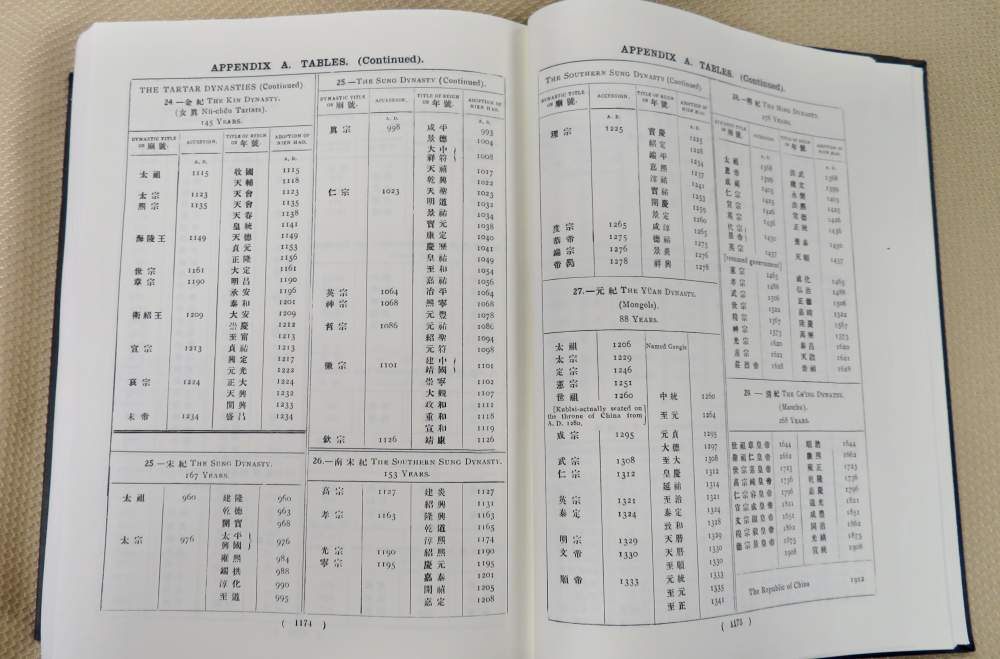 APPENDIX A. TABLES. (Continued).
THE TARTAR DYNASTIES (Continued)
24.—金紀 THE KIN DYNASTY.
(女眞 Nü-chên Tartars).
145 YEARS.
DYNASTIC TITLE OR 廟號. ACCESSION. TITLE OF REIGN OR 年號. ADOPTION OF NIEN HAO.
A. D. A. D.
太祖 1115 收國 1115
天輔 1118
太宗 1123 天會 1123
熙宗 1135 天會 1135
天眷 1138
皇統 1141
海陵王 1149 天德 1149
貞元 1153
正隆 1156
世宗 1161 大定 1161
章宗 1190 明昌 1190
承安 1196
泰和 1201
衛紹王 1209 大安 1209
崇慶 1212
至寧 1213
宣宗 1213 貞祐 1213
興定 1217
元光 1222
哀宗 1224 正大 1224
天興 1232
開興 1233
末帝 1234 盛昌 1234
25—宋紀 THE SUNG DYNASTY.
167 YEARS.
太祖 960 建隆 960
乾德 963
開寶 968
太宗 976 太平興國 976
雍熙 984
端拱 988
淳化 990
至道 995
25.—THE SUNG DYNASTY (Continued).
DYNASTIC TITLE OR 廟號. ACCESSION. TITLE OF REIGN OR 年號. ADOPTION OF NIEN HAO.
A. D. A. D.
眞宗 998 咸平 998
景德 1004
大中祥符 1008
天禧 1017
乾興 1022
仁宗 1023 天聖 1023
明道 1032
景祐 1034
寶元 1038
康定 1040
慶歷 1041
皇祐 1049
至和 1054
嘉祐 1056
英宗 1064 治平 1064
神宗 1068 熙寧 1068
元豐 1078
哲宗 1086 元祐 1086
紹聖 1094
元符 1098
徽宗 1101 建中靖國 1101
崇寧 1102
大觀 1107
政和 1111
重和 1118
宣和 1119
欽宗 1126 靖康 1126
26.—南宋紀 THE SOUTHERN SUNG DYNASTY.
153 YEARS.
高宗 1127 建炎 1127
紹興 1131
孝宗 1163 隆興 1163
乾道 1165
淳熙 1174
光宗 1190 紹熙 1190
寧宗 1195 慶元 1195
嘉泰 1201
開禧 1205
嘉定 1208
( 1174 )
APPENDIX A. TABLES. (Continued).
THE SOUTHERN SUNG DYNASTY (Continued)
DYNASTIC TITLE OR 廟號. ACCESSION. TITLE OF REIGN OR 年號. ADOPTION OF NIEN HAO.
A. D. A. D.
理宗 1225 寶慶 1225
紹定 1228
端平 1234
嘉熙 1237
淳祐 1241
寶祐 1253
開慶 1259
景定 1260
度宗 1265 咸淳 1265
恭帝 1275 德祐 1275
端宗 1276 景炎 1276
帝昺 1278 祥興 1278
27.—元紀 THE YÜAN DYNASTY.
(Mongols).
88 YEARS.
太祖 1206 Named Gengis
太宗 1229
定宗 1246
憲宗 1251
世祖 1260 中統 1260
[Kublai-actually seated on the throne of China from A. D. 1280.
至元 1264
成宗 1295 元貞 1295
大德 1297
武宗 1308 至大 1308
仁宗 1312 皇慶 1312
延祐 1314
英宗 1321 至治 1321
泰定 1324 泰定 1324
致和 1328
明宗 1329 天曆 1329
文帝 1330 天曆 1330
至順 1330
順帝 1333 元統 1333
至元 1335
至正 1341
28.—明紀 THE MING DYNASTY.
276 YEARS.
DYNASTIC TITLE OR 廟號. ACCESSION. TITLE OF REIGN OR 年號.
太祖 1368 洪武 1368
惠帝 1399 建文 1399
成祖 1403 永樂 1403
仁宗 1425 洪熙 1425
宣宗 1426 宣德 1426
英宗 1436 正統 1436
景帝 1450 景泰 1450
英宗 1457 天順 1457
[resumed government]
憲宗 1465 成化 1465
孝宗 1488 弘治 1488
武宗 1506 正德 1506
世宗 1522 嘉靖 1522
穆宗 1567 隆慶 1567
神宗 1573 萬曆 1573
光宗 1620 泰昌 1620
1621 天啟 1621
1628 1628
29.—清紀 THE CH'ING DYNASTY.
(Manchu).
268 YEARS.
世祖章皇帝 1644 順治 1644
聖祖仁皇帝 1662 康熙 1662
1723 雍正 1723
高宗純皇帝 1736 乾隆 1736
仁宗睿皇帝 1796 嘉慶 1796
宣宗成皇帝 1821 道光 1821
文宗顯皇帝 1851 咸豐 1851
穆宗毅皇帝 1862 同治 1862
德宗景皇帝 1875 光緒 1875
1908 宣統 1908
The Republic of China 1912
( 1175 )